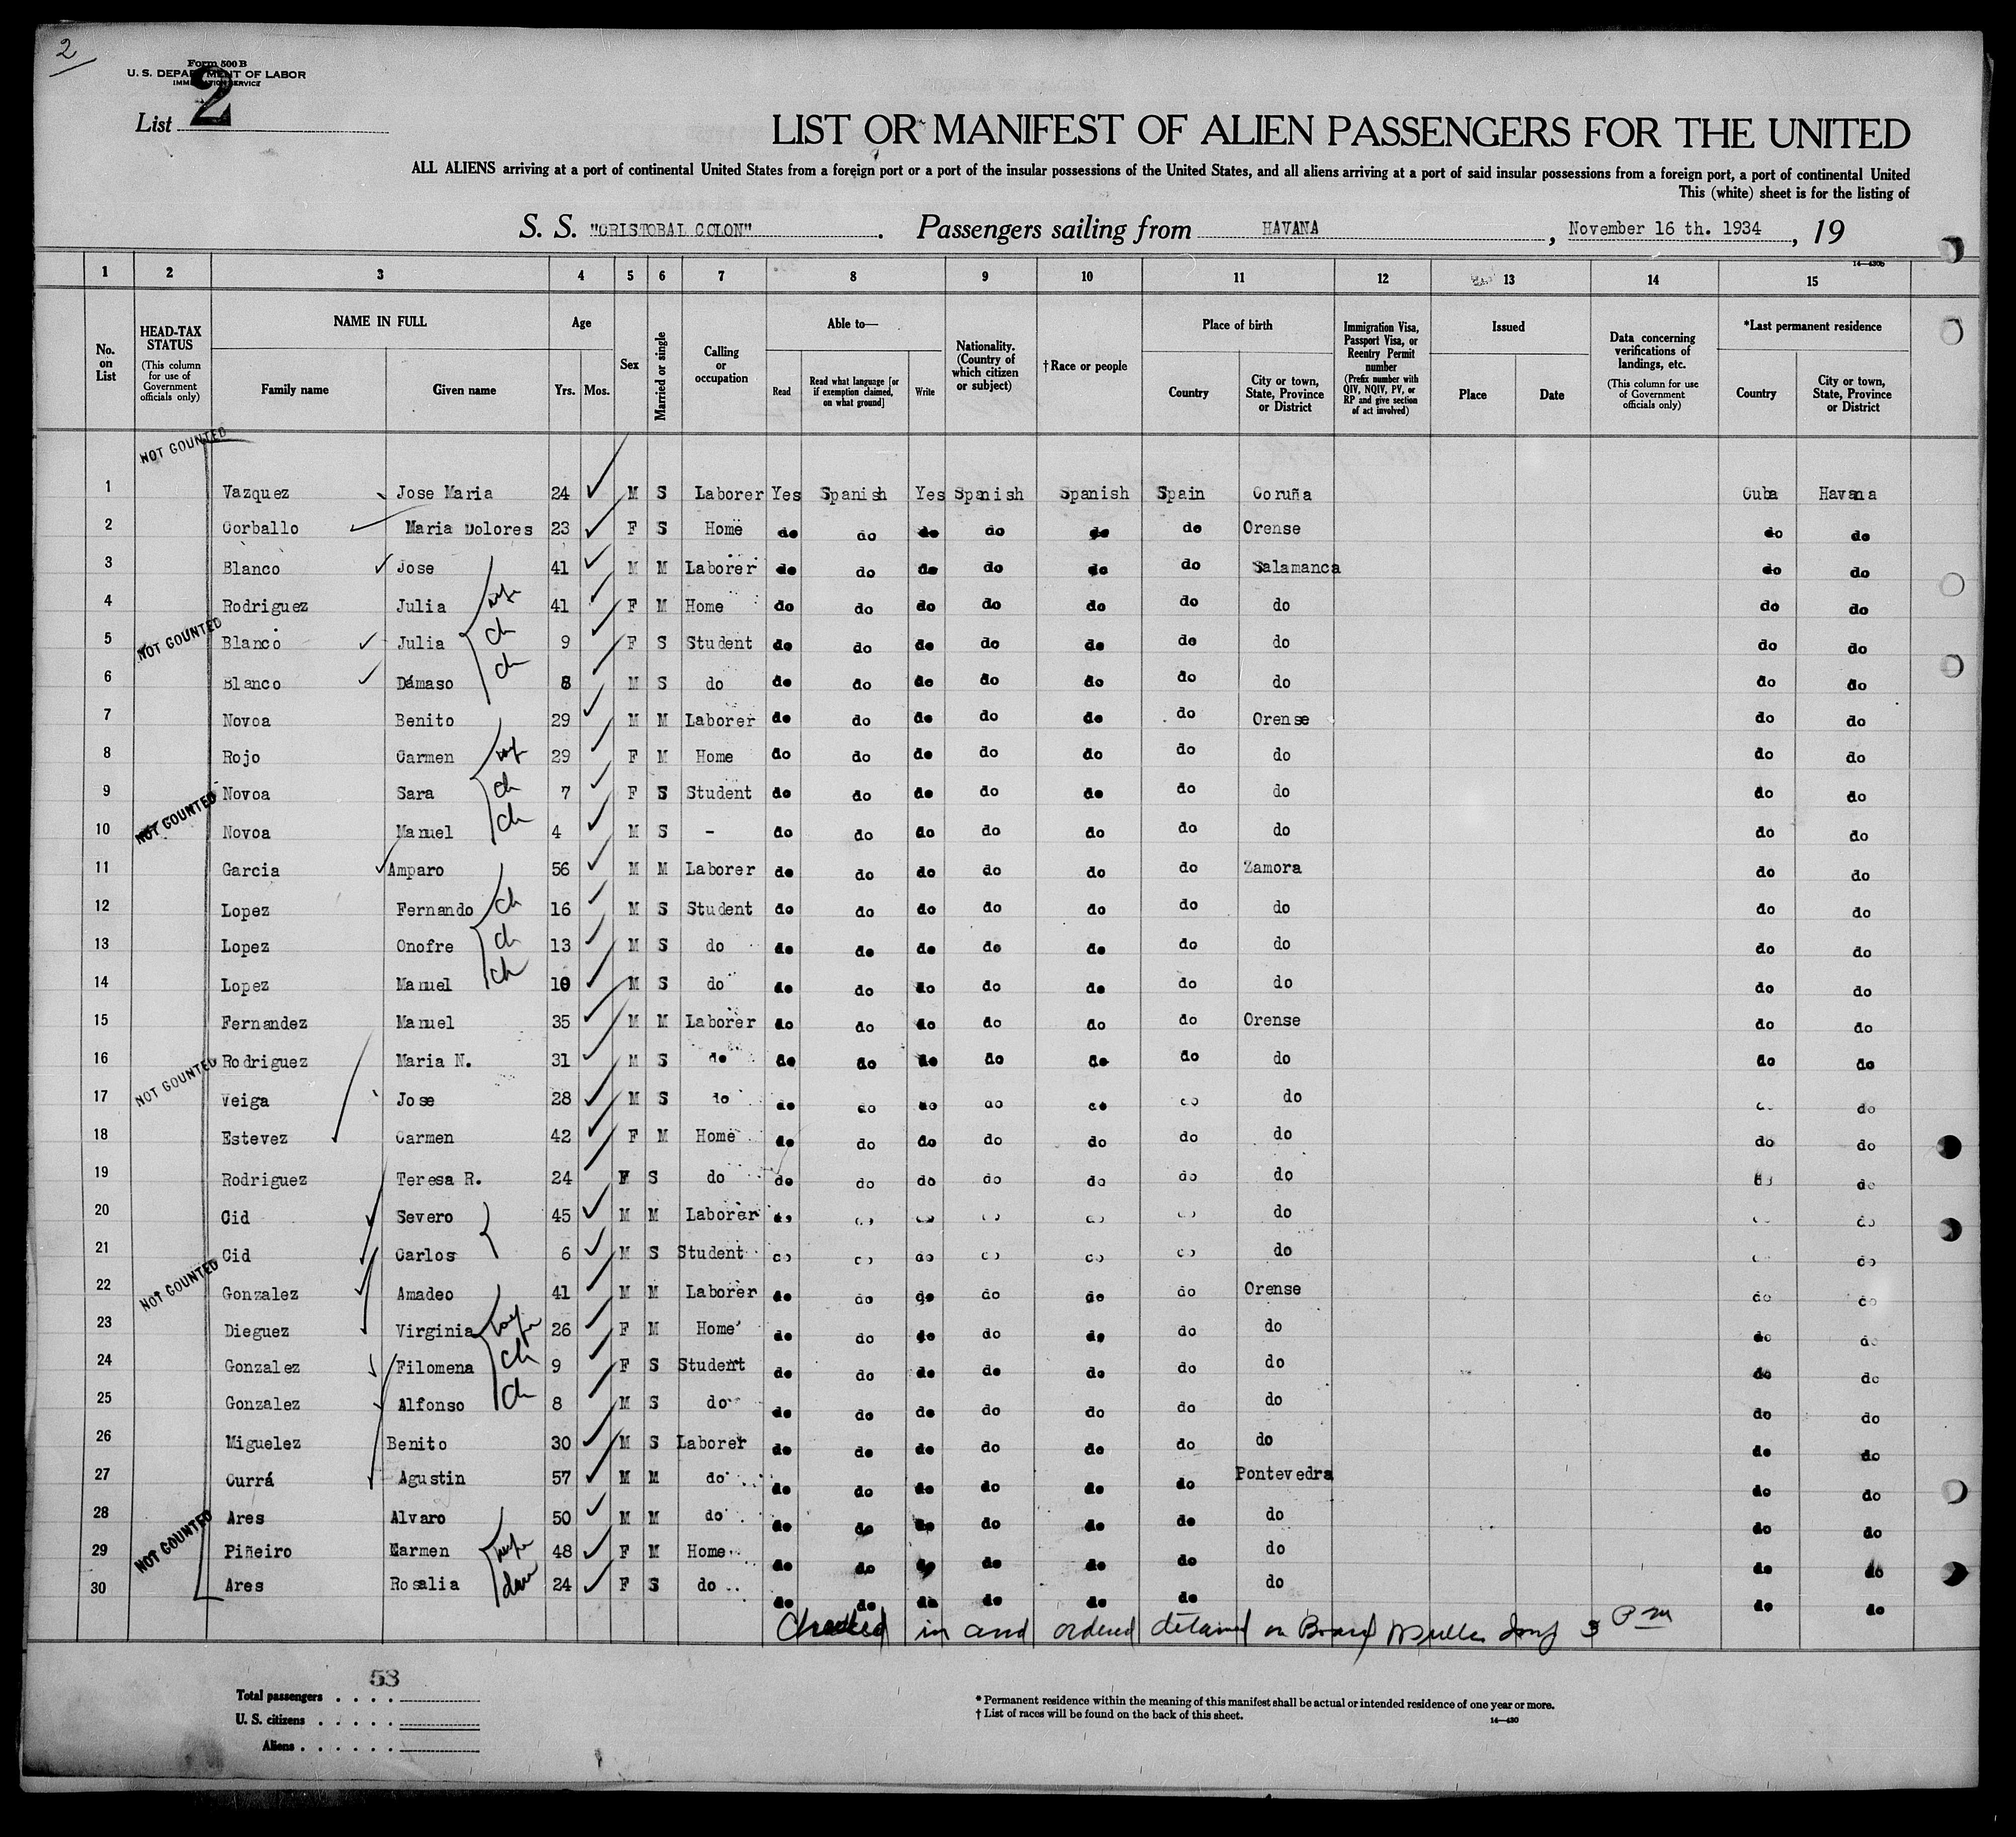 2
Form 500 B
U. S. DEPARTMENT OF LABOR
IMMIGRATION SERVICE
List 2
LIST OR MANIFEST OF ALIEN PASSENGERS FOR THE UNITED
ALL ALIENS arriving at a port of continental United States from a foreign port or a port of the insular possessions of the United States, and all aliens arriving at a port of said insular possessions from a foreign port, a port of continental United
This (white) sheet is for the listing of
S. S. "CRISTOBAL COLON". Passengers sailing from HAVANA, November 16 th. 1934, 19
14—430b
1 2 3 4 5 6 7 8 9 10 11 12 13 14 15
No. on List
HEAD-TAX STATUS (This column for use of Government officials only)
NAME IN FULL
Family name
Given name
Age
Yrs. Mos.
Sex
Married or single
Calling or occupation
Able to—
Read
Read what language [or if exemption claimed, on what ground]
Write
Nationality. (Country of which citizen or subject)
† Race or people
Place of birth
Country
City or town, State, Province or District
Immigration Visa, Passport Visa, or Reentry Permit number (Prefix number with QIV, NQIV, PV, or RP and give section of act involved)
Issued
Place
Date
Data concerning verifications of landings, etc. (This column for use of Government officials only)
*Last permanent residence
Country
City or town, State, Province or District
NOT COUNTED
1 Vazquez Jose Maria 24 M S Laborer Yes Spanish Yes Spanish Spanish Spain Coruña Cuba Havana
2 Corballo Maria Dolores 23 F S Home do do do do do do Orense do do
3 Blanco Jose 41 M M Laborer do do do do do do Salamanca do do
4 Rodriguez Julia wife 41 F M Home do do do do do do do do do
NOT COUNTED
5 Blanco Julia ch 9 F S Student do do do do do do do do do
6 Blanco Dámaso ch 8 M S do do do do do do do do do do
7 Novoa Benito 29 M M Laborer do do do do do do Orense do do
8 Rojo Carmen wife 29 F M Home do do do do do do do do do
9 Novoa Sara ch 7 F S Student do do do do do do do do do
NOT COUNTED
10 Novoa Manuel ch 4 M S - do do do do do do do do do
11 Garcia Amparo 56 M M Laborer do do do do do do Zamora do do
12 Lopez Fernando ch 16 M S Student do do do do do do do do do
13 Lopez Onofre ch 13 M S do do do do do do do do do do
14 Lopez Manuel ch 10 M S do do do do do do do do do do
15 Fernandez Manuel 35 M M Laborer do do do do do do Orense do do
16 Rodriguez Maria N. 31 M S do do do do do do do do do do
NOT COUNTED
17 Veiga Jose 28 M S do do do do do do do do do do
18 Estevez Carmen 42 F M Home do do do do do do do do do
19 Rodriguez Teresa R. 24 F S do do do do do do do do do do
20 Cid Severo 45 M M Laborer do do do do do do do do do
21 Cid Carlos 6 M S Student do do do do do do do do do
NOT COUNTED
22 Gonzalez Amadeo 41 M M Laborer do do do do do do Orense do do
23 Dieguez Virginia wife 26 F M Home do do do do do do do do do
24 Gonzalez Filomena ch 9 F S Student do do do do do do do do do
25 Gonzalez Alfonso ch 8 M S do do do do do do do do do do
26 Miguelez Benito 30 M S Laborer do do do do do do do do do
27 Currá Agustin 57 M M do do do do do do do Pontevedra do do
28 Ares Alvaro 50 M M do do do do do do do do do do
NOT COUNTED
29 Piñeiro Carmen wife 48 F M Home do do do do do do do do do
30 Ares Rosalia dau 24 F S do do do do do do do do do do
Checked in and ordered detained on Board 3 P m
53
Total passengers
U. S. citizens
Aliens
* Permanent residence within the meaning of this manifest shall be actual or intended residence of one year or more.
† List of races will be found on the back of this sheet.
14—430